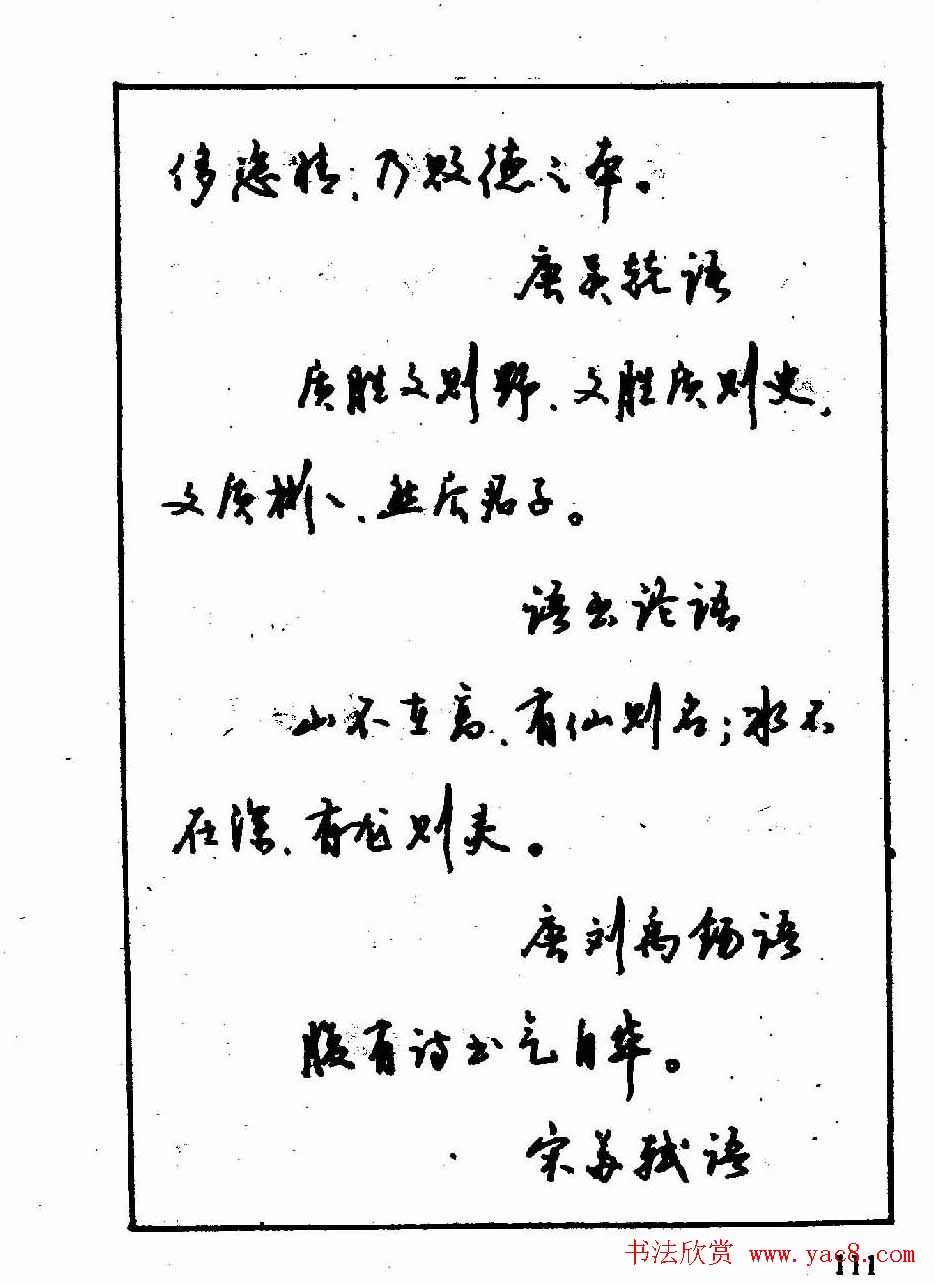 侈恣情，乃败德之本。
唐吴兢语
质胜文则野，文胜质则史，
文质彬彬，然后君子。
语出论语
山不在高，有仙则名；水不
在深，有龙则灵。
唐刘禹锡语
腹有诗书气自华。
宋苏轼语
书法欣赏 www.yac8.com
111